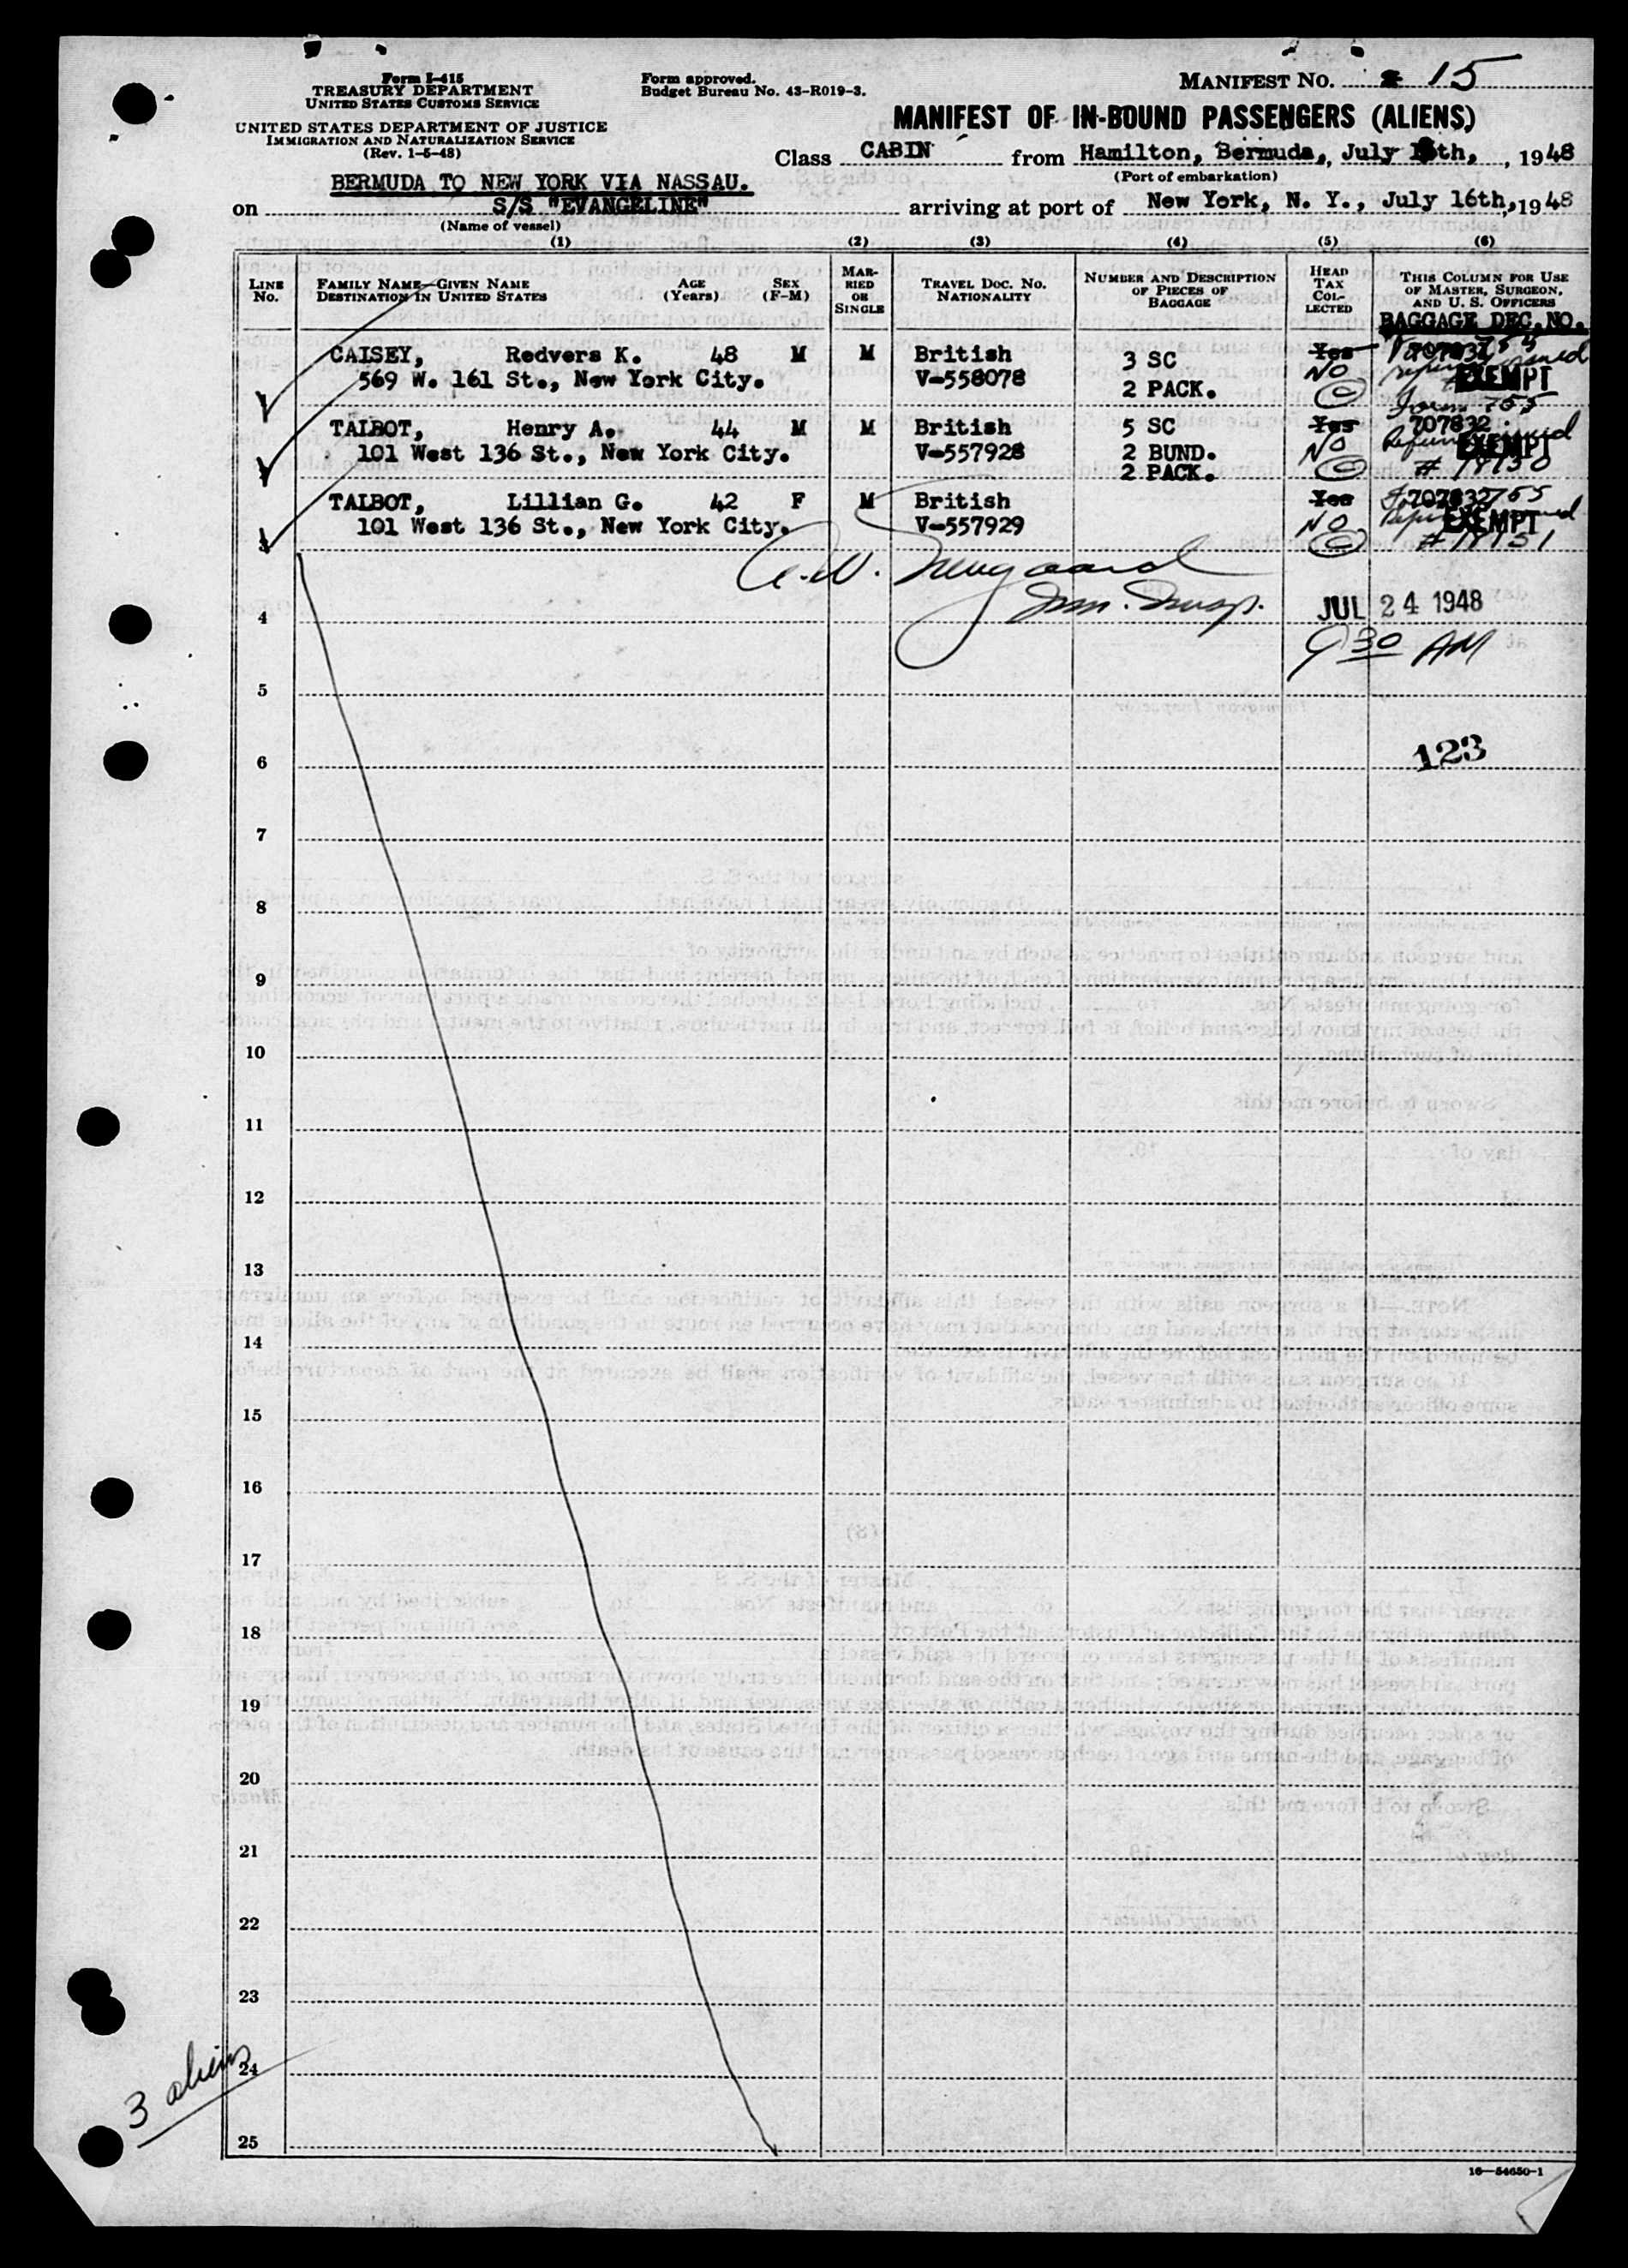 Form I-415
TREASURY DEPARTMENT
UNITED STATES CUSTOMS SERVICE
UNITED STATES DEPARTMENT OF JUSTICE
IMMIGRATION AND NATURALIZATION SERVICE
(Rev. 1-5-48)
Form approved.
Budget Bureau No. 43-R019-3.
MANIFEST NO. 15
MANIFEST OF IN-BOUND PASSENGERS (ALIENS)
Class CABIN from Hamilton, Bermuda, July th, , 1948
(Port of embarkation)
BERMUDA TO NEW YORK VIA NASSAU.
on S/S "EVANGELINE" arriving at port of New York, N. Y., July 16th, 1948
(Name of vessel)
(1) (2) (3) (4) (5) (6)
LINE No. FAMILY NAME—GIVEN NAME DESTINATION IN UNITED STATES AGE (Years) SEX (F-M) MARRIED OR SINGLE TRAVEL DOC. NO. NATIONALITY NUMBER AND DESCRIPTION OF PIECES OF BAGGAGE HEAD TAX COLLECTED THIS COLUMN FOR USE OF MASTER, SURGEON, AND U. S. OFFICERS
BAGGAGE DEC. NO.
CAISEY, Redvers K. 48 M M British 3 SC Yes
569 W. 161 St., New York City. V-558078 2 PACK. NO EXEMPT
Form 755
TALBOT, Henry A. 44 M M British 5 SC Yes 707832
101 West 136 St., New York City. V-557928 2 BUND. NO EXEMPT
2 PACK. # 18150
TALBOT, Lillian G. 42 F M British Yes 707832
101 West 136 St., New York City. V-557929 NO EXEMPT
3 # 18151
Imm. Insp.
4 JUL 24 1948
9 30 AM
5
6 123
7
8
9
10
11
12
13
14
15
16
17
18
19
20
21
22
23
24
3 aliens
25
16—54650-1